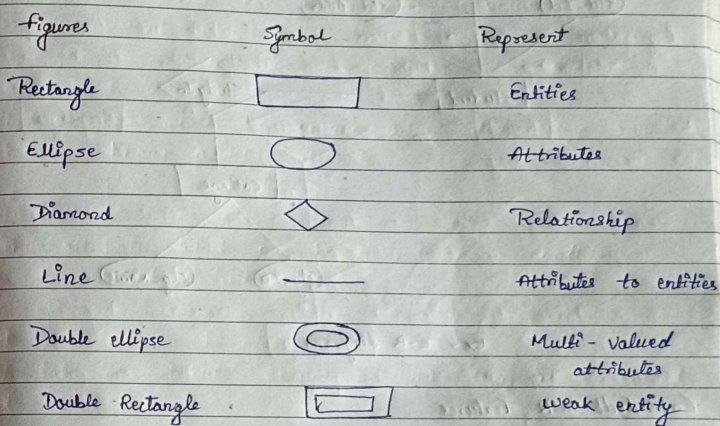 Figures Symbol Represent
Rectangle Entities
Ellipse Attributes
Diamond Relationship
Line Attributes to entities
Double ellipse Multi-valued
attributes
Double Rectangle Weak entity